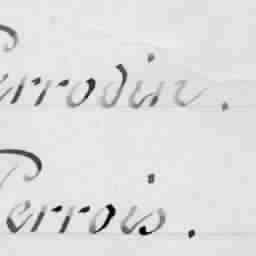 Perrodin.
Perrois.